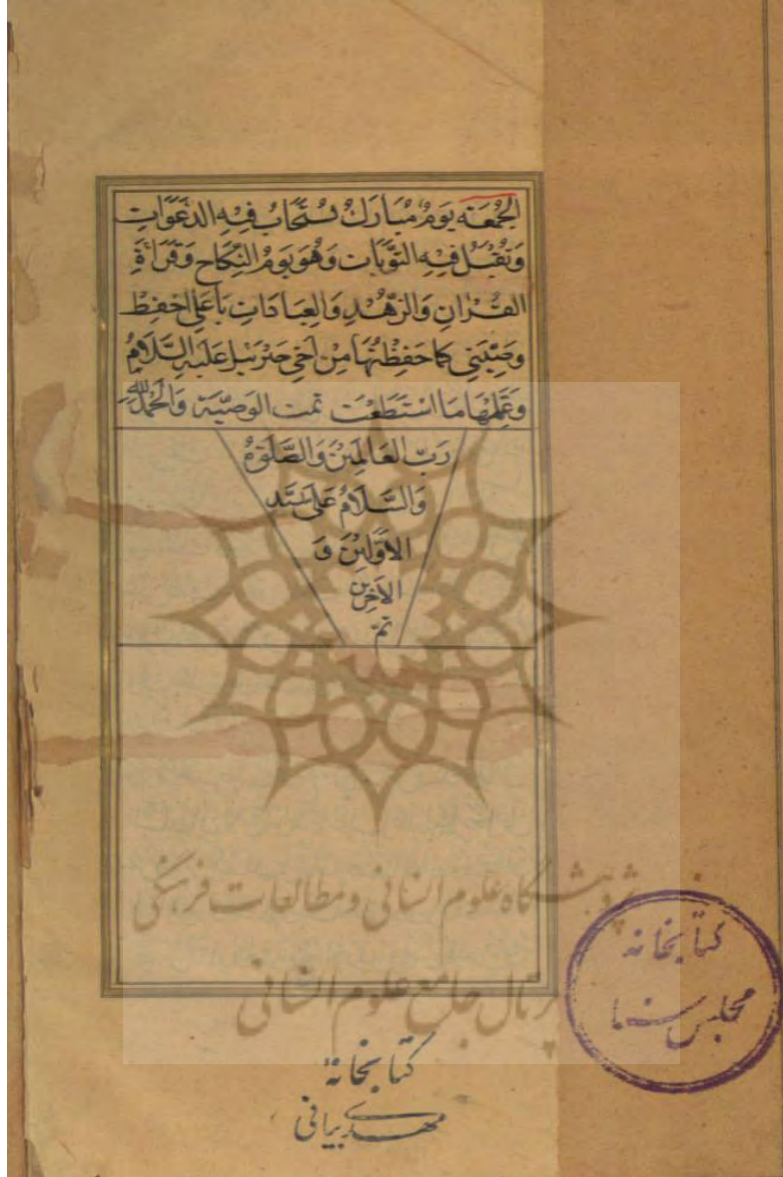 الجُمْعَة يَومٌ مُبَارَكٌ تُسْتَجَابُ فِيهِ الدَّعَوَاتِ
وَتُقْبَلُ فِيهِ التَّوْبَات وَهُوَ يَوْمُ النِّكَاحِ وَقَرَاءَةِ
القُرْانِ وَالزُّهْدِ وَالعِبَادَاتِ يَا عَلِي احْفَظْ
وَصِيَّتِي كَمَا حَفِظْتُهَا مِنْ اَخِي جَبْرَئِيل عَلَيْهِ السَّلَامُ
وَعَلِّمْهَا مَا اسْتَطَعْتَ تمت الوَصِيَّة وَالحَمْدُ لله
رَبِّ العَالَمِينَ وَالصَّلٰوةُ
وَالسَّلَامُ عَلَى سَيِّد
الأَوَّلِينَ وَ
الاَخِرِين
تم
پژوهشگاه علوم انسانی و مطالعات فرهنگی
پرتال جامع علوم انسانی
کتابخانه
مجلس سنا
کتابخانهٔ
مهدی بیانی